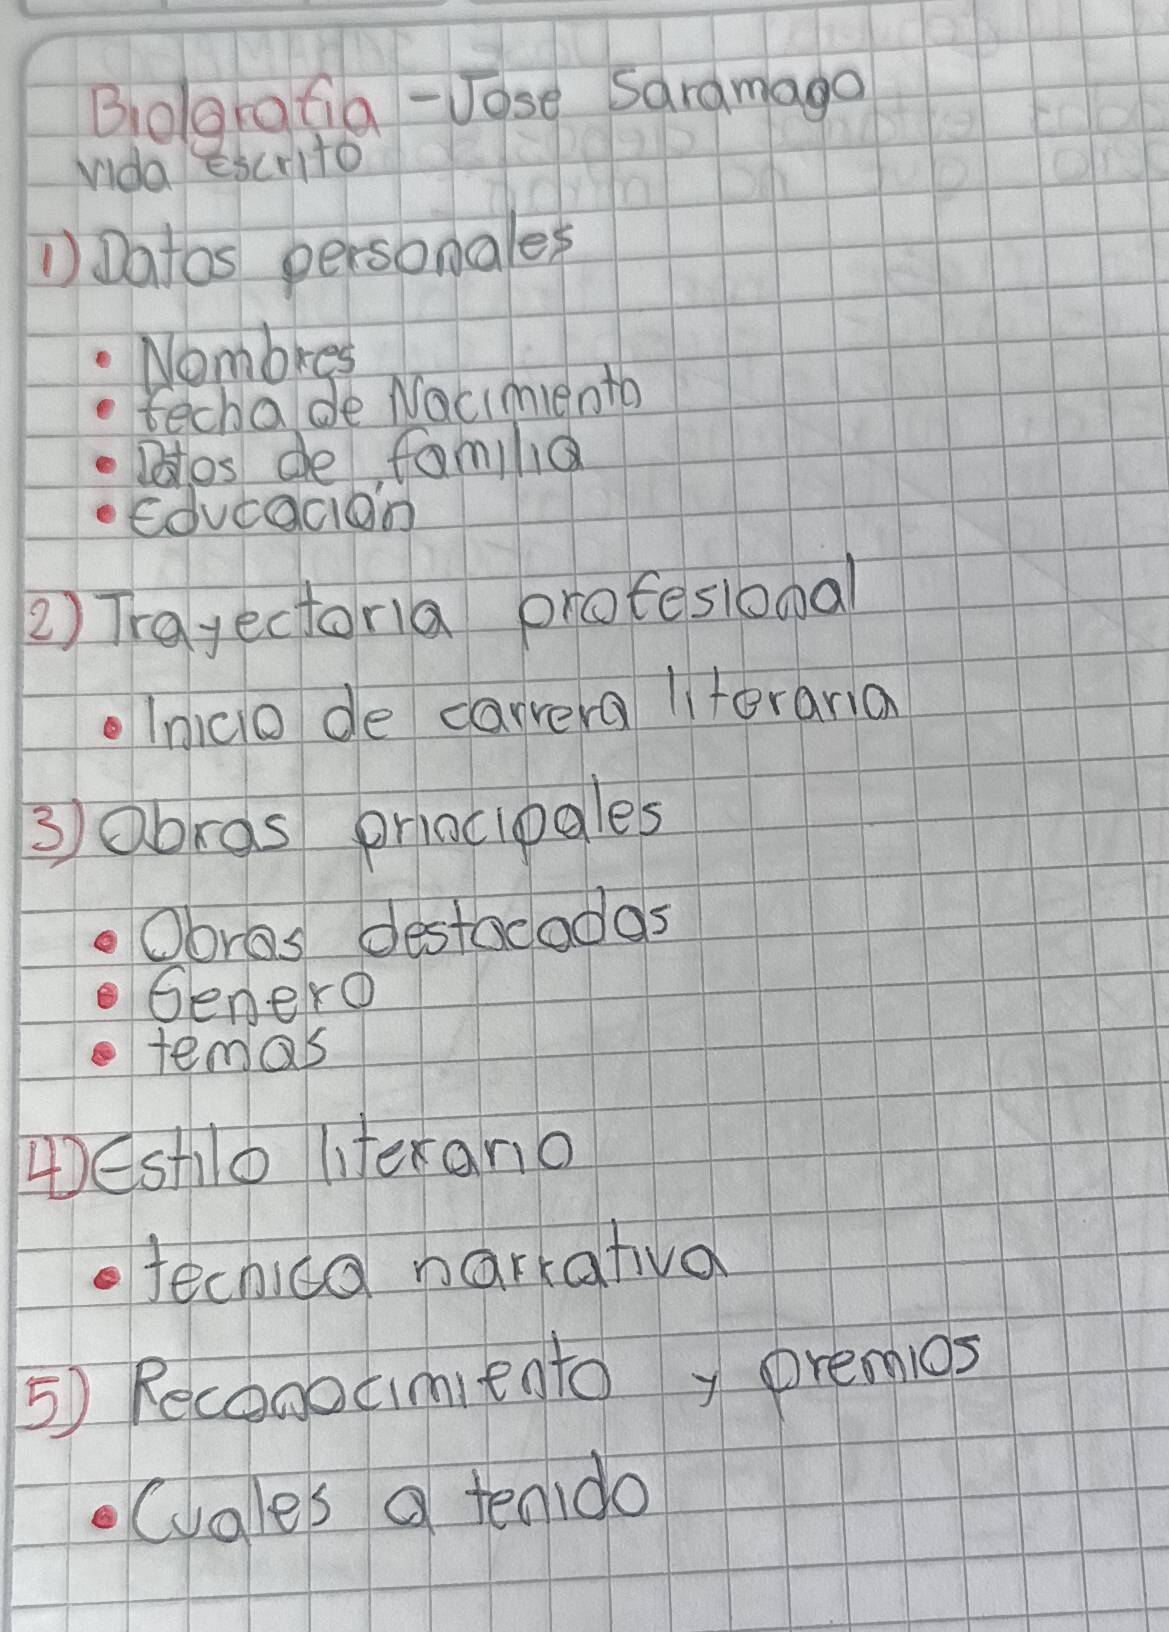 Biolgrafia - Jose Saramago
vida escrito
1) Datos personales
• Nombres
• fecha de Nacimiento
• Datos de familia
• Educación
2) Trayectoria profesional
• Inicio de carrera literaria
3) Obras principales
• Obras destacadas
• Genero
• temas
4) Estilo literario
• tecnica narrativa
5) Reconocimiento y premios
• Cuales a tenido